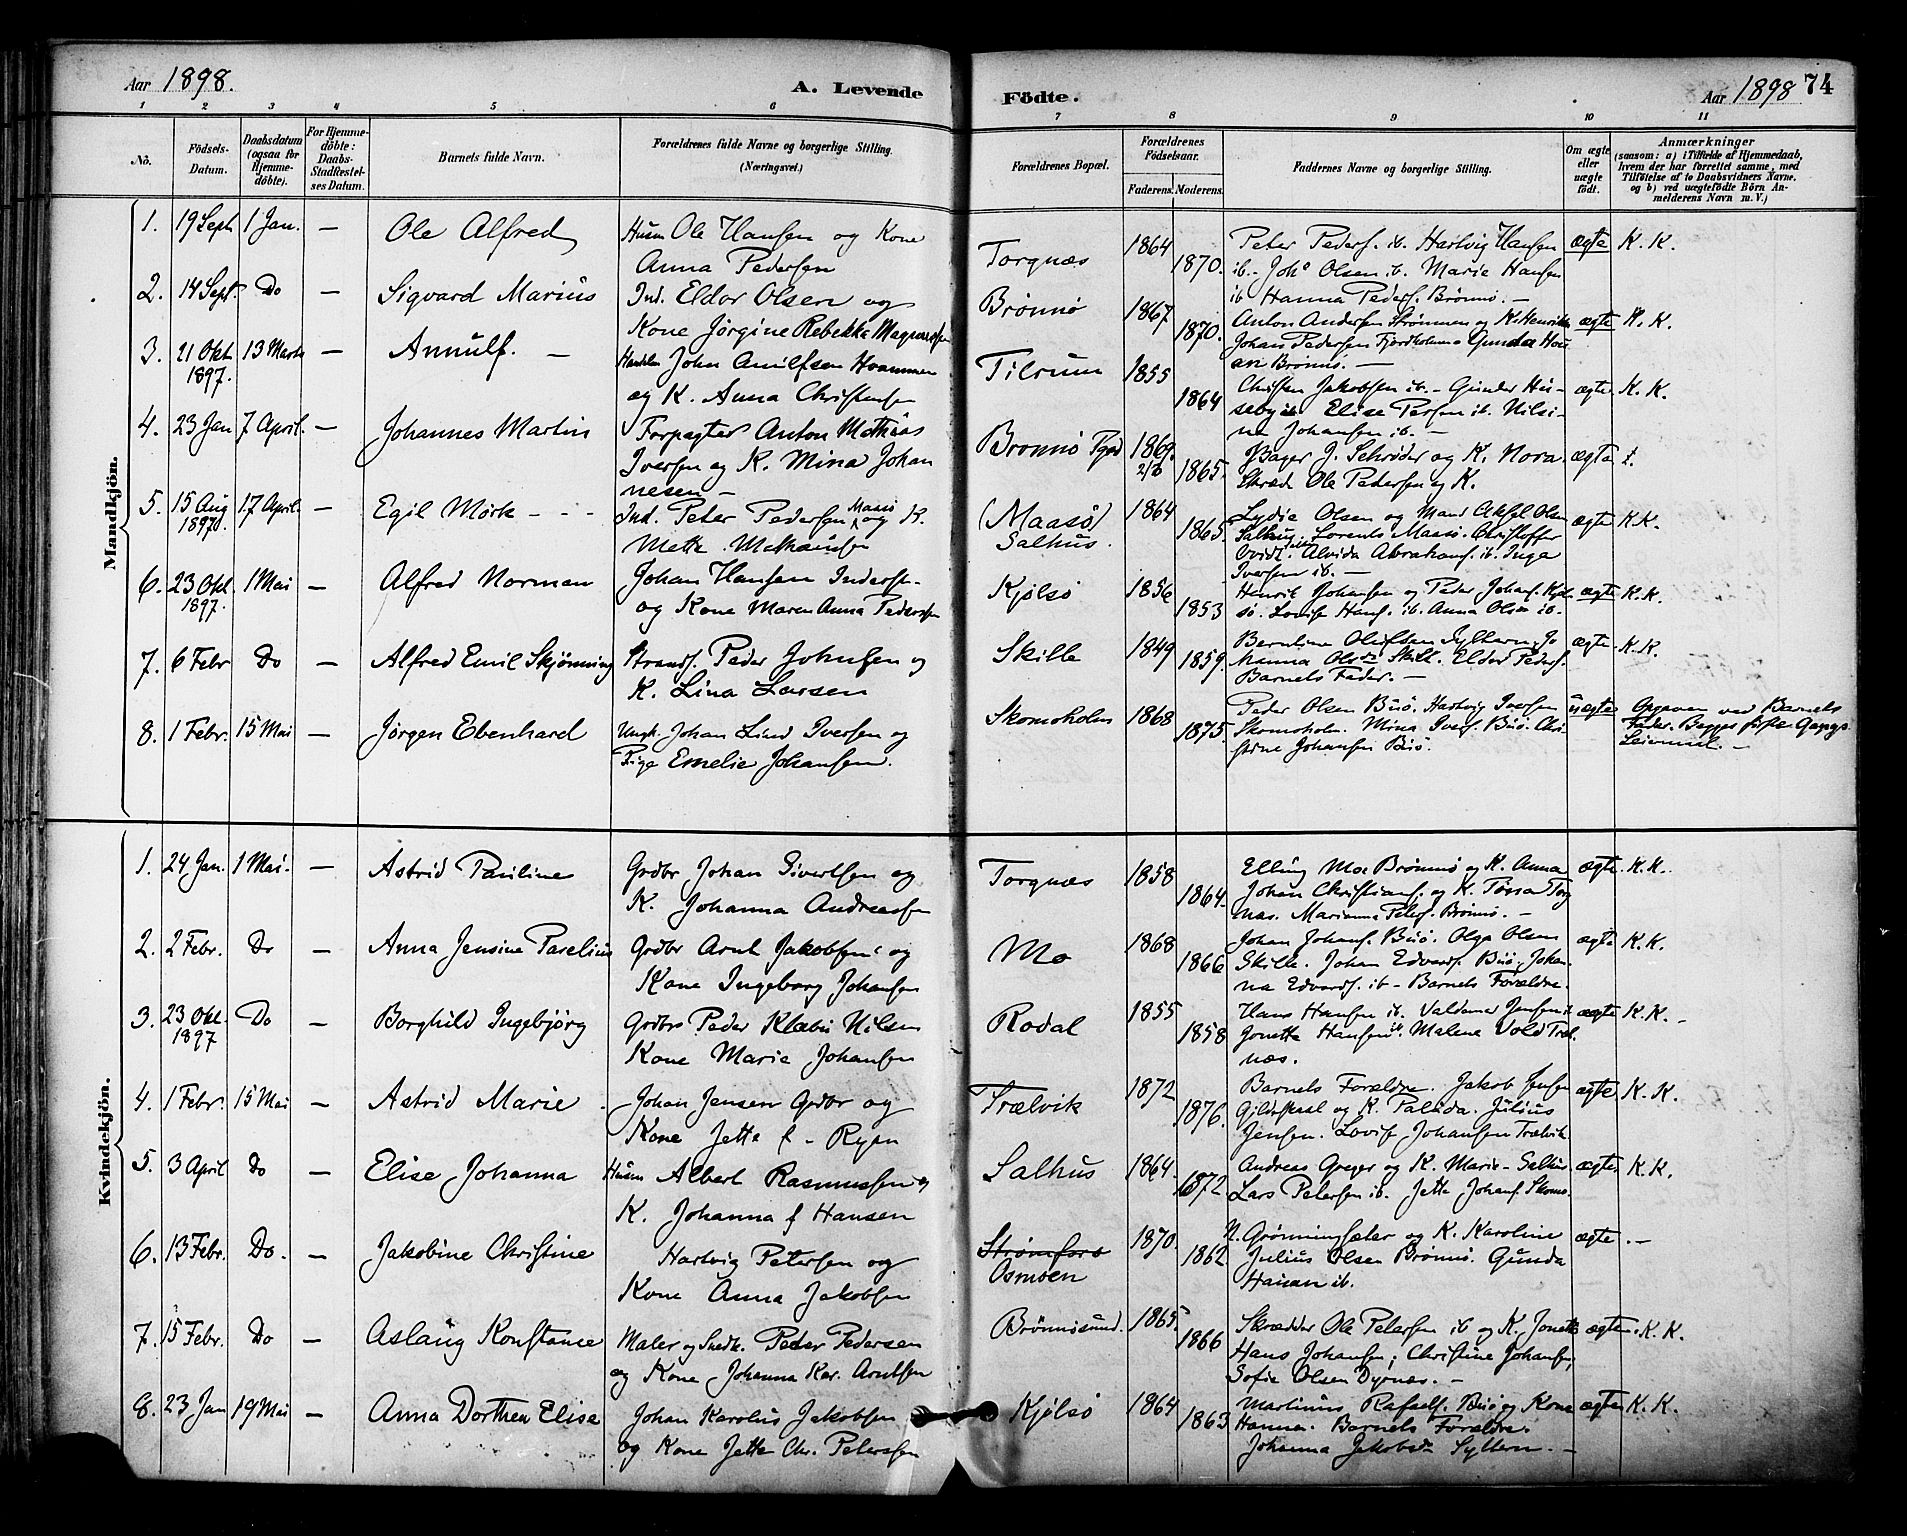 Aar 1898. A. Levende
1 2 3 4 5 6
No. Födsels-Datum. Daabsdatum (ogsaa for Hjemmedöbte). For Hjemmedöbte: Daabs-Stadfestelses Datum. Barnets fulde Navn. Forældrenes fulde Navne og borgerlige Stilling. (Næringsvei.)
Mandkjön.
1. 19 Sept 1 Jan. — Ole Alfred Husm Ole Hansen og Kone
Anna Pedersen
2. 14 Sept. Do — Sigvard Marius Ind. Eldor Olsen og
Kone Jørgine Rebekka
3. 21 Okt 1897. 13 Marts — Arnulf. — John Hvammen
og K. Anna Christensen
4. 23 Jan 7 April. — Johannes Martin Forpagter Anton Mathias
Iversen og K. Mina Johan
nesen —
5. 15 Aug 1897. 17 April. — Egil Mørk - - - Ind. Peter Pedersen Maasø og K.
Mette
6. 23 Okt. 1897. 1 Mai — Alfred Norman Johan Hansen Inderst
og Kone Maren Anna Pedersen
7. 6 Febr Do — Alfred Emil Skjønning Strands. Peder Johnsen og
K. Lina Larsen
8. 1 Febr. 15 Mai — Jørgen Ebenhard Ungk. Johan Lind Iversen og
Pige Emelie Johansen.
Kvindekjön.
1. 24 Jan. 1 Mai. — Astrid Pauline Grdbr Johan Sivertsen og
K. Johanna Andreassen
2. 2 Febr. Do — Anna Jensine Parelius Grdbr Arnt Jakobsen og
Kone Ingeborg Johansen
3. 23 Okt. 1897 Do — Borghild Ingebjørg Grdbr Peder Klæbu Nilsen
Kone Marie Johansen
4. 1 Febr. 15 Mai — Astrid Marie Johan Jensen Grdbr og
Kone Jette f - Ryen
5. 3 April Do — Elise Johanna Husm Albert Rasmussen og
K. Johanna f Hansen
6. 13 Febr. Do. — Jakobine Christine Hartvig Petersen og
Kone Anna Jakobsen
7. 15 Febr. Do — Aslaug Konstanse Maler og Snedk. Peder Pedersen
og Kone Johanna Kar. Arntsen
8. 23 Jan 19 Mai — Anna Dorthea Elise Johan Karolus Jakobsen
og Kone Jette Chr. Petersen
Födte. Aar 1898 74
7 8 9 10 11
Forældrenes Bopæl. Forældrenes Födselsaar. Faderens. Moderens. Faddernes Navne og borgerlige Stilling. Om ægte eller uægte födt. Anmærkninger
(saasom: a) i Tilfælde af Hjemmedaab, hvem der har forrettet samme, med Tilföielse af to Daabsvidners Navne, og b) ved uægtefödte Börn Anmelderens Navn m. V.)
Torgnæs 1864 1870. Peter Peders. ib. Hartvig Hansen ægte K. K.
ib. - Johs Olsen ib. Marie Hansen
ib Hanna Peders. Brønnø. —
Brønnø 1867 1870. Anton Andersen Strømmen og K. Henrikke ægte K. K.
Johan Pedersen Fjordholmen Gunda
Brønnø. —
Tilrum 1855 1864 Christen Jakobsen ib. - Gunder Hu- ægte. K. K.
seby ib. Elise ib. Nilsi-
ne Johansen ib. —
Brønnø Pgd 1869. 1865. Bager J. Schrøder og K. Nora. ægte
Skræd. Ole Pedersen og K.
(Maasø)
Salhus. 1864 1865. Lydia Olsen og Mand Aksel Olsen ægte K K.
Salhus. Lorents Maasø. Christoffer
Alvida Abrahams. ib. Inga
Iversen ib. —
Kjølsø 1856 1853 Henrik Johansen og Peder Johans. Kjøl- ægte K. K.
sø. Lovise Hans. ib. Anna Olsen ib.
Skille 1849 1859. Berntine Olufsen Sylteren. Jo ægte. K. K.
hanna Skill. Eldor Peders.
Barnets Fader. —
Skomoholm 1868 1875. Peder Olsen Buø. Hartvig Iversen uægte Opgiven ved Barnets
Skomoholm. Mina Ivers. Buø. Chri- Fader. Begges første Gangs
stine Johansen Buø. Leiermaal. —
Torgnæs 1858 1864. Elling Moe Brønnø og K. Anna ægte. K. K.
Johan Christians. og K. Torg
næs. Marianna Peters. Brønnø. —
Mo 1868 1866 Johan Johans. Buø. Olga Olsen ægte K. K.
Skille. Johan Edvards. Buø. Johan-
na Edvards. ib - Barnets Forældre.
Rodal 1855 1858 Hans Hansen ib. Valdemar Jensen ægte K. K. —
Jonette Hansen ib. Malene Vold Træl
næs.
Trælvik 1872 1876. Barnets Forældre. Jakob Jensen ægte K. K.
Gildeskaal og K. Palida. Julius
Jensen. Lovise Johansen Trælvik
Salhus 1864. 1872 Andreas Greger og K. Marie - Salhus ægte. K. K.
Lars Petersen ib. Jette Johans. Skomo.
Strømfors
Osmoen 1870. 1862 N. Grønningsæter og K. Karoline ægte. —
Julius Olsen Brønnø. Gunda
Hansen ib.
Brønnøsund. 1865. 1866 Skrædder Ole Petersen ib og K. Jonette ægte. K. K.
Hans Johansen; Christine Johansen;
Sofie Olsen Dypnæs. —
Kjølsø 1864 1863 Martinus Rafaels. Buø og Kone ægte K. K.
Hanna. Barnets Forældre.
Johanna Jakobsd. Syltern. —